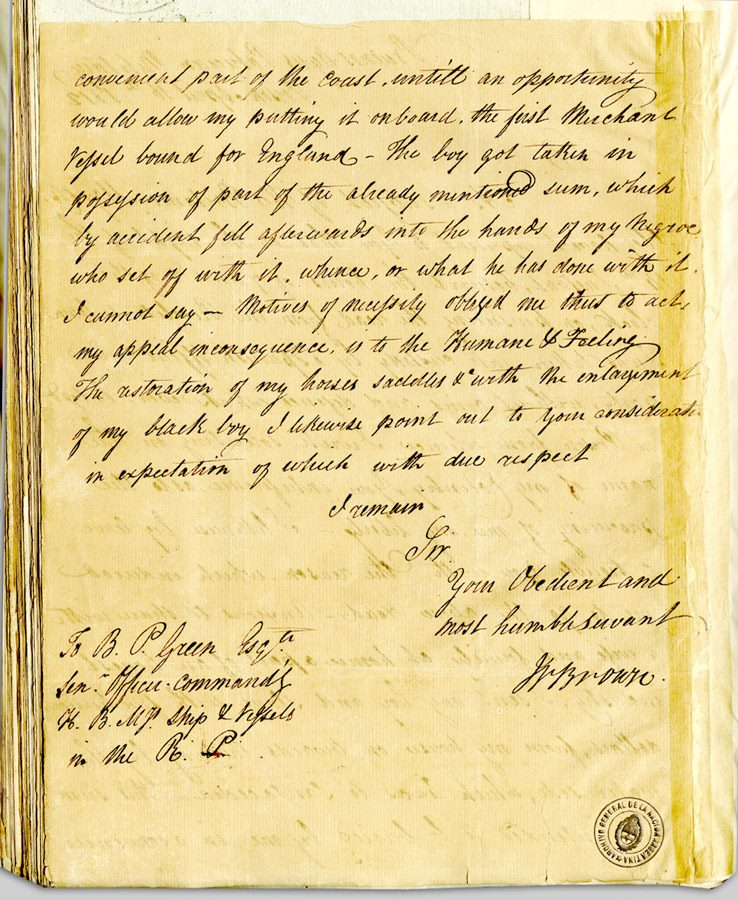 convenient part of the Coast, untill an opportunity
would allow my putting it onboard, the first Merchant
Vessel bound for England – The boy got taken in
possession of part of the already mentioned sum, which
by accident fell afterwards into the hands of my Negroe
who set off with it, whence, or what he has done with it,
I cannot say – Motives of necessity obliged me thus to act,
my appeal inconsequence, is to the Humane & Feeling.
The restoration of my horses saddles &c with the enlargement
of my black boy I likewise point out to your consideratn
in expectation of which with due respect
I remain
Sir
Your Obedient and
most humble servant
Wm Brown.
To B. P. Green Esqre
Senr Officer Commandg
H. B. Mjs Ship & Vessels
in the R. P.
ARCHIVO GENERAL DE LA NACION ARGENTINA